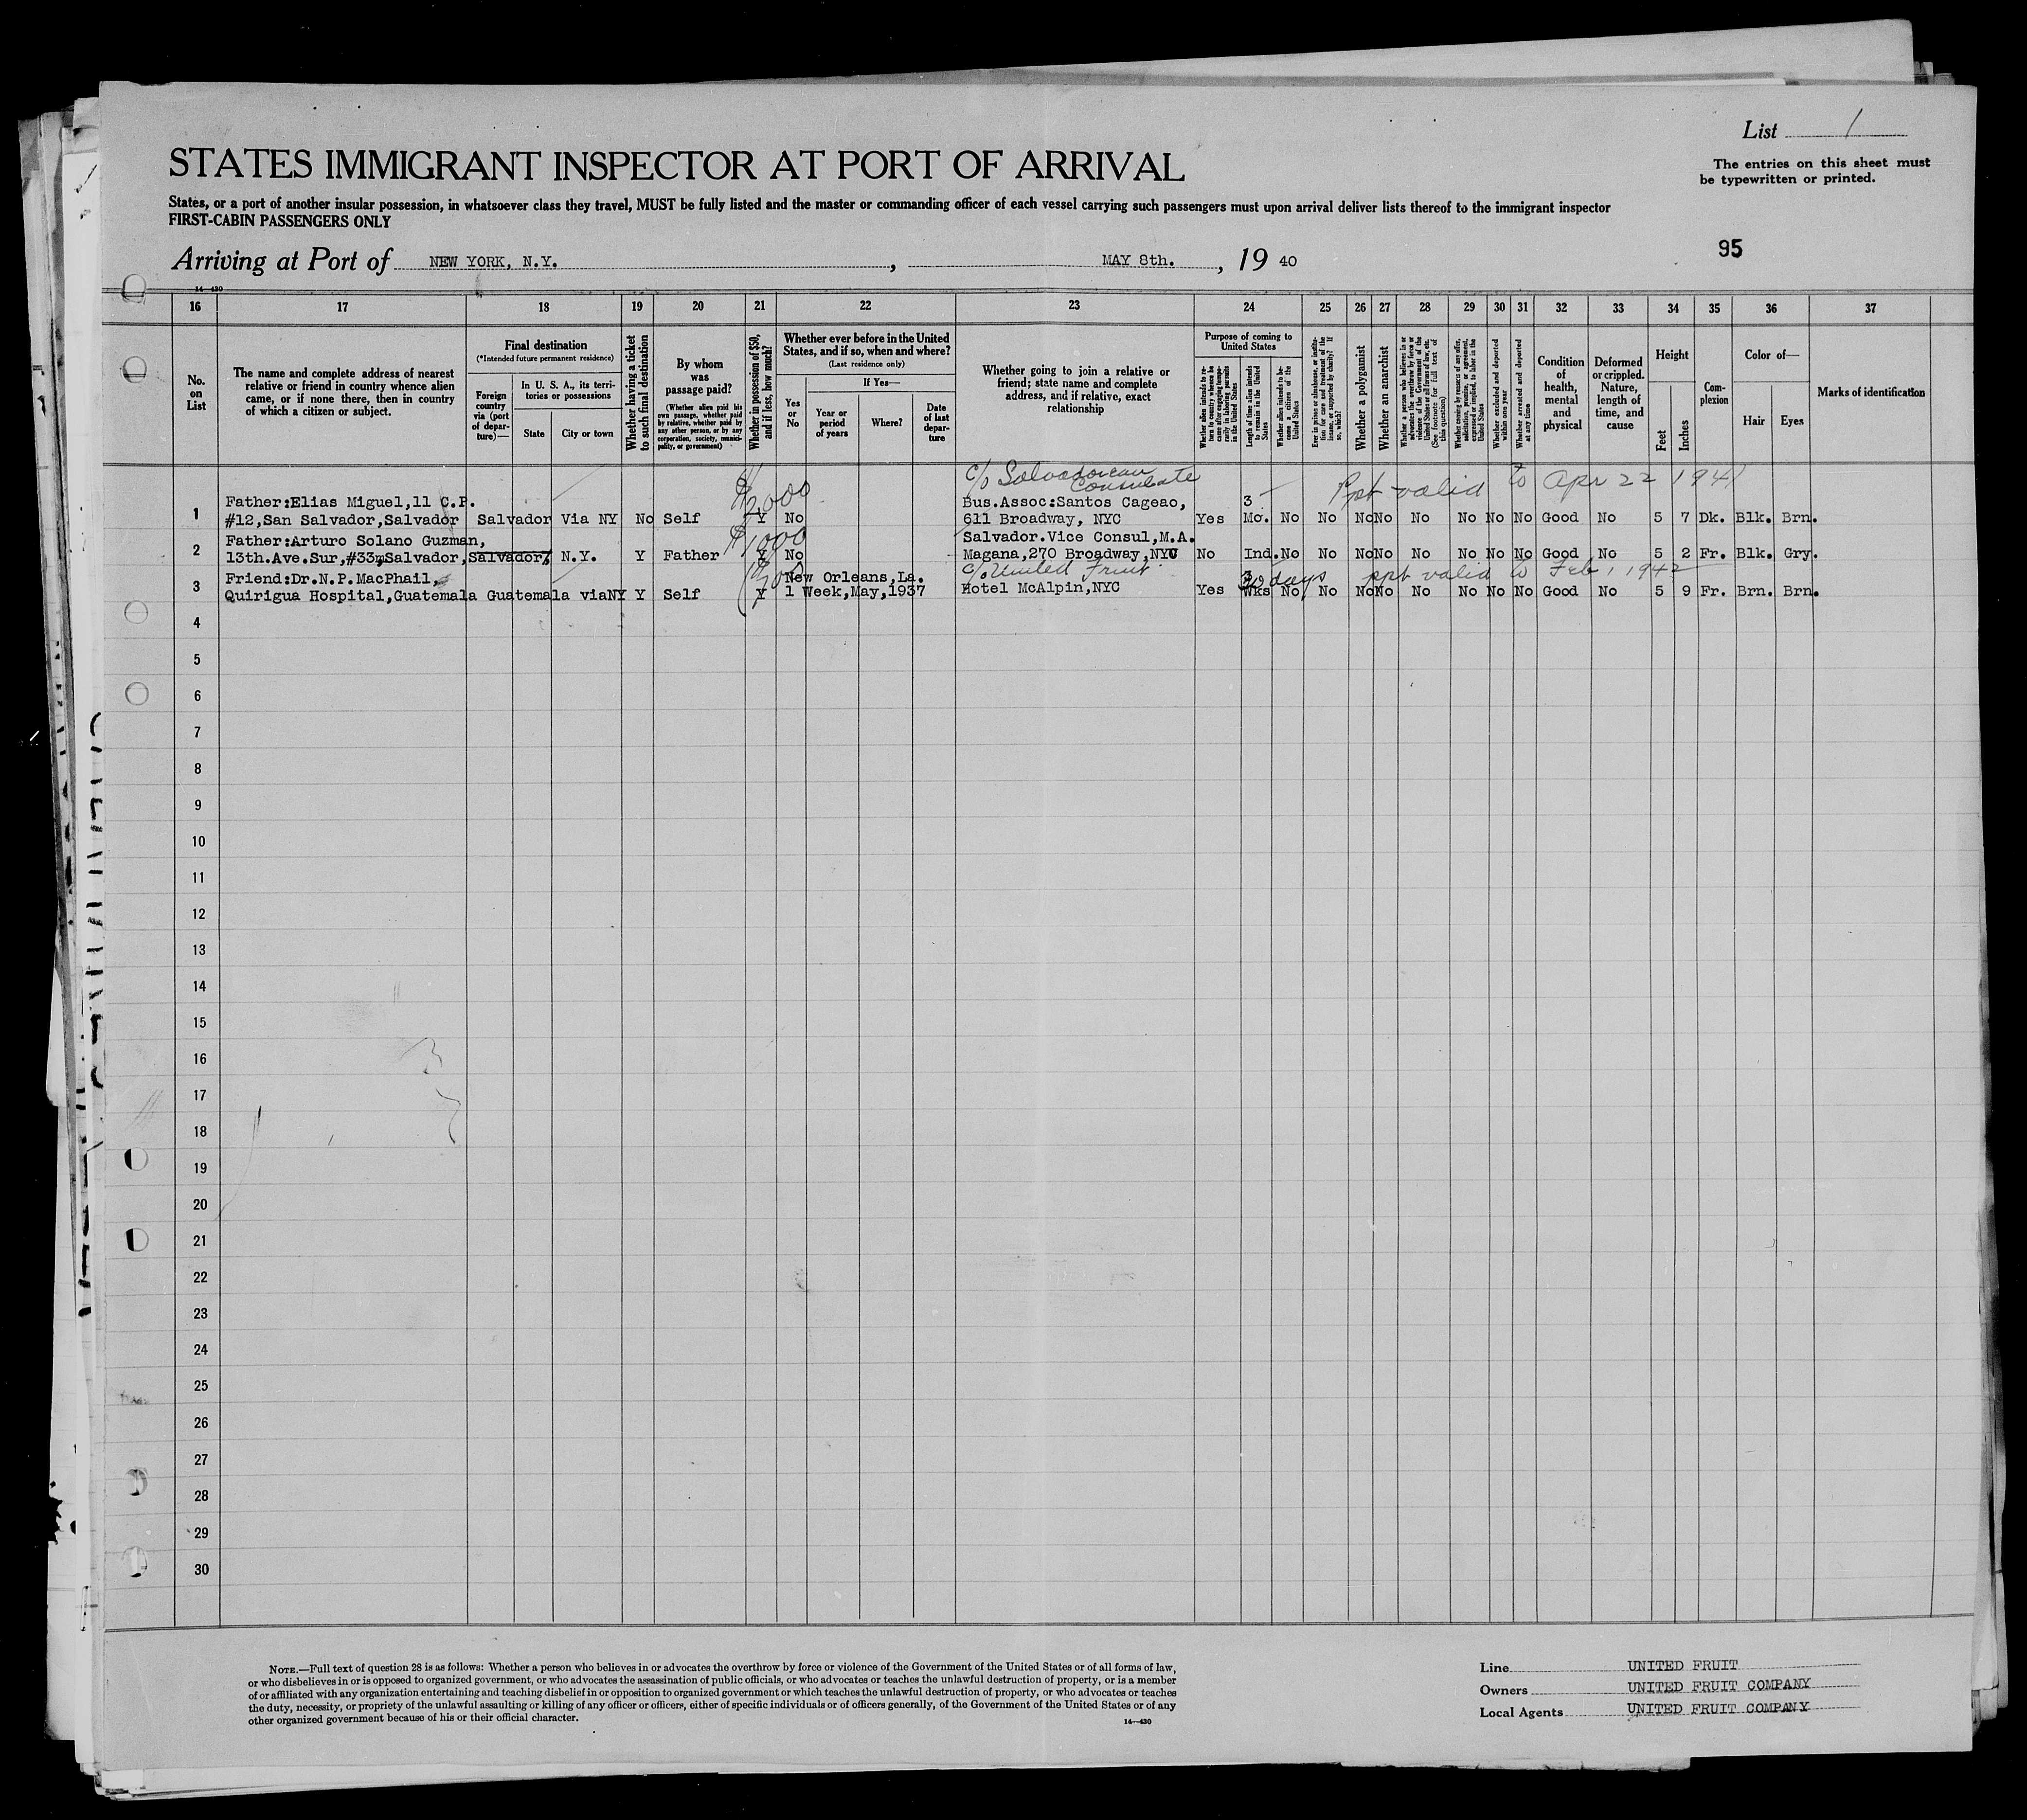 List 1
STATES IMMIGRANT INSPECTOR AT PORT OF ARRIVAL
The entries on this sheet must
be typewritten or printed.
States, or a port of another insular possession, in whatsoever class they travel, MUST be fully listed and the master or commanding officer of each vessel carrying such passengers must upon arrival deliver lists thereof to the immigrant inspector
FIRST-CABIN PASSENGERS ONLY
95
Arriving at Port of NEW YORK, N.Y. , MAY 8th. , 19 40
14—430
16 17 18 19 20 21 22 23 24 25 26 27 28 29 30 31 32 33 34 35 36 37
No. on List
The name and complete address of nearest relative or friend in country whence alien came, or if none there, then in country of which a citizen or subject.
Final destination
(*Intended future permanent residence)
Foreign country via (port of departure)—
In U. S. A., its territories or possessions
State
City or town
Whether having a ticket to such final destination
By whom was passage paid?
(Whether alien paid his own passage, whether paid by relative, whether paid by any other person, or by any corporation, society, municipality, or government)
Whether in possession of $50, and if less, how much?
Whether ever before in the United States, and if so, when and where?
(Last residence only)
If Yes—
Yes or No
Year or period of years
Where?
Date of last departure
Whether going to join a relative or friend; state name and complete address, and if relative, exact relationship
Purpose of coming to United States
Whether alien intends to return to country whence he came after engaging temporarily in laboring pursuits in the United States
Length of time alien intends to remain in the United States
Whether alien intends to become a citizen of the United States
Ever in prison or almshouse, or institution for care and treatment of the insane, or supported by charity? If so, which?
Whether a polygamist
Whether an anarchist
Whether a person who believes in or advocates the overthrow by force or violence of the Government of the United States or all forms of law, etc. (See footnote for full text of this question)
Whether coming by reason of any offer, solicitation, promise, or agreement, expressed or implied, to labor in the United States
Whether excluded and deported within one year
Whether arrested and deported at any time
Condition of health, mental and physical
Deformed or crippled. Nature, length of time, and cause
Height
Feet
Inches
Complexion
Color of—
Hair
Eyes
Marks of identification
c/o Salvadorean Consulate
Ppt valid to Apr 22 1941
$2,000
Father:Elias Miguel,11 C.P. Bus.Assoc:Santos Cageao, 3
1 #12,San Salvador,Salvador Salvador Via NY No Self Y No 611 Broadway, NYC Yes Mo. No No No No No No No No Good No 5 7 Dk. Blk. Brn.
$1000
Father:Arturo Solano Guzman, Salvador.Vice Consul,M.A.
2 13th.Ave.Sur,#33,Salvador,Salvador, N.Y. Y Father Y No Magana,270 Broadway,NYC No Ind. No No No No No No No No Good No 5 2 Fr. Blk. Gry.
c/o United Fruit 30 days ppt valid to Feb 1, 1942
Friend:Dr.N.P.MacPhail, New Orleans,La.
3 Quirigua Hospital,Guatemala Guatemala viaNY Y Self Y 1 Week,May,1937 Hotel McAlpin,NYC Yes Wks No No No No No No No No Good No 5 9 Fr. Brn. Brn.
4
5
6
7
8
9
10
11
12
13
14
15
16
17
18
19
20
21
22
23
24
25
26
27
28
29
30
NOTE.—Full text of question 28 is as follows: Whether a person who believes in or advocates the overthrow by force or violence of the Government of the United States or of all forms of law,
or who disbelieves in or is opposed to organized government, or who advocates the assassination of public officials, or who advocates or teaches the unlawful destruction of property, or is a member
of or affiliated with any organization entertaining and teaching disbelief in or opposition to organized government or which teaches the unlawful destruction of property, or who advocates or teaches
the duty, necessity, or propriety of the unlawful assaulting or killing of any officer or officers, either of specific individuals or of officers generally, of the Government of the United States or of any
other organized government because of his or their official character.
14—430
Line UNITED FRUIT
Owners UNITED FRUIT COMPANY
Local Agents UNITED FRUIT COMPANY